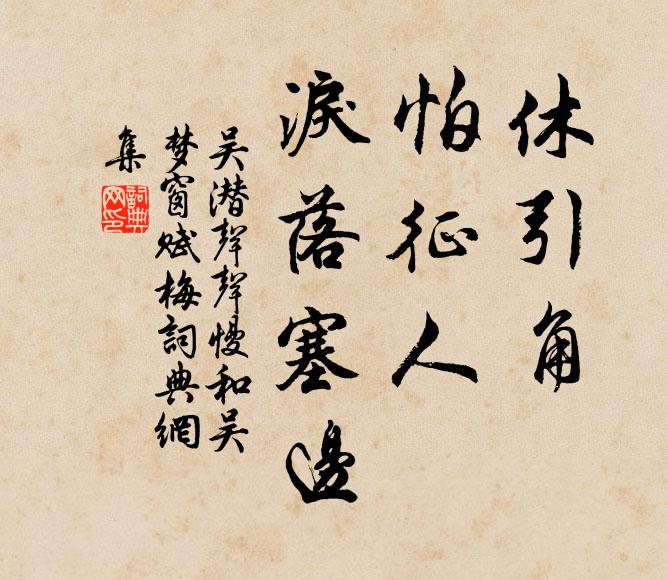 休引角
怕征人
淚落塞邊
吴潜聲聲慢和吴
梦窗赋梅詞典網
集
詞典網印